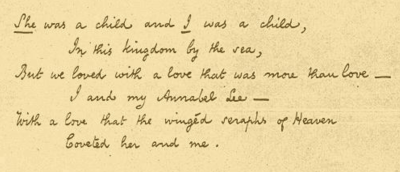 She was a child and I was a child,
In this kingdom by the sea,
But we loved with a love that was more than love —
I and my Annabel Lee —
With a love that the wingéd seraphs of Heaven
Coveted her and me.